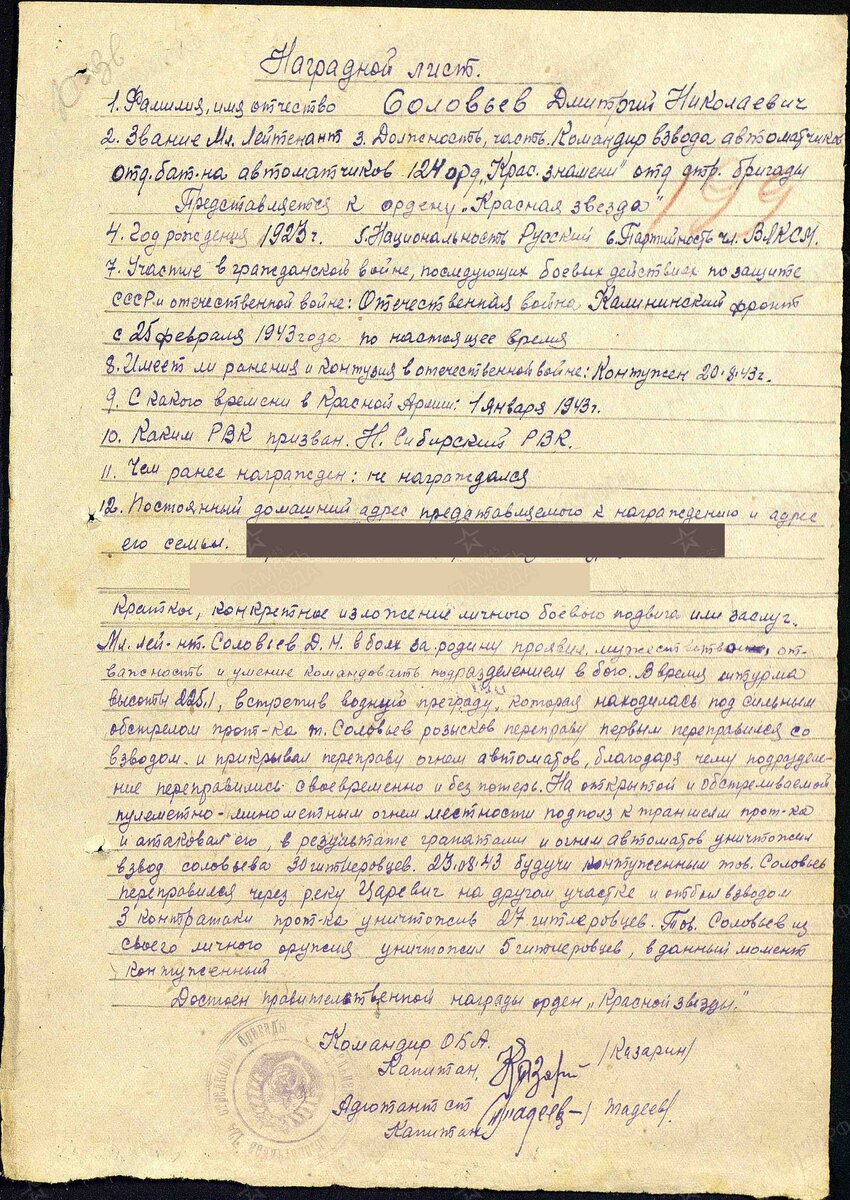 Наградной лист.
1. Фамилия, имя отчество Соловьев Дмитрий Николаевич
2. Звание Мл. Лейтенант 3. Должность, часть. Командир взвода автоматчиков
отд. бат-на автоматчиков 124 орд. „Крас. знамени" отд стр. бригады
199
Представляется к ордену „Красная звезда"
4. Год рождения 1923г. 5. Национальность Русский 6. Партийность чл. ВЛКСМ.
7. Участие в гражданской войне, последующих боевых действиях по защите
СССР и отечественной войне: Отечественная война Калининский фронт
с 25 февраля 1943 года по настоящее время
8. Имеет ли ранения и контузия в отечественной войне: Контужен 20.8.43г.
9. С какого времени в Красной Армии: 1 января 1943г.
10. Каким РВК призван. Н. Сибирский РВК.
11. Чем ранее награжден: не награждался
12. Постоянный домашний адрес представляемого к награждению и адрес
его семьи.
Краткое, конкретное изложение личного боевого подвига или заслуг.
Мл. лей-нт. Соловьев Д.Н. в боях за родину проявил, мужество, от-
важность и умение командовать подразделением в бою. В время штурма
высоты 225.1, встретив водную преграду, которая находилась под сильным
обстрелом прот-ка т. Соловьев розысков переправу первым переправился со
взводом и прикрывал переправу огнем автоматов, благодаря чему подразделе-
ние переправились своевременно и без потерь. На открытой и обстреливаемой
пулеметно-минометным огнем местности подполз к траншеям прот-ка
и атаковал его, в результате гранатами и огнем автоматов уничтожил
взвод соловьева 30 гитлеровцев. 23.08.43 будучи контуженным тов. Соловьев
переправился через реку Царевич на другом участке и отбил взводом
3 контратаки прот-ка уничтожив 27 гитлеровцев. Тов. Соловьев из
своего личного оружия уничтожил 5 гитлеровцев, в данный момент
контуженный
Достоен правительственной награды орден „Красной звезды."
Командир ОБА.
Капитан, /Казарин/
Адютант ст
Капитан /Тадеев/